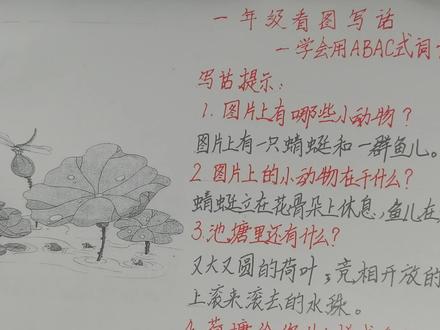 一年级看图写话
—学会用ABAC式词
写话提示：
1.图片上有哪些小动物？
图片上有一只蜻蜓和一群鱼儿。
2.图片上的小动物在干什么？
蜻蜓立在花骨朵上休息，鱼儿在
3.池塘里还有什么？
又大又圆的荷叶，竞相开放的
上滚来滚去的水珠。